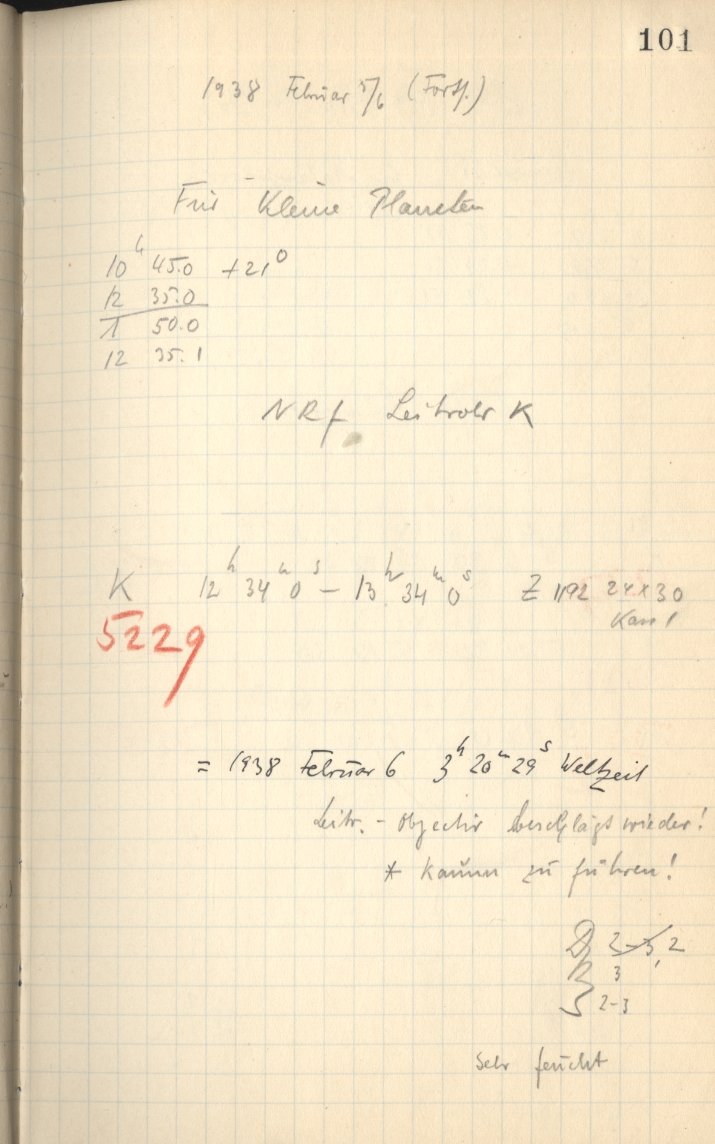 101
1938 Februar 5/6 (Forts.)
Für Kleine Planeten
10h 45.0 +21°
12 35.0
1 50.0
12 35.1
NRf Leitrohr K
K 12h 34m 0s – 13h 34m 0s Z 1192 24x30
5229
= 1938 Februar 6 3h 20m 29s Weltzeit
Leitr. - Objectiv beschlägt wieder!
* kaum zu führen!
2-3, 2
R 3
S 2-3
Sehr feucht